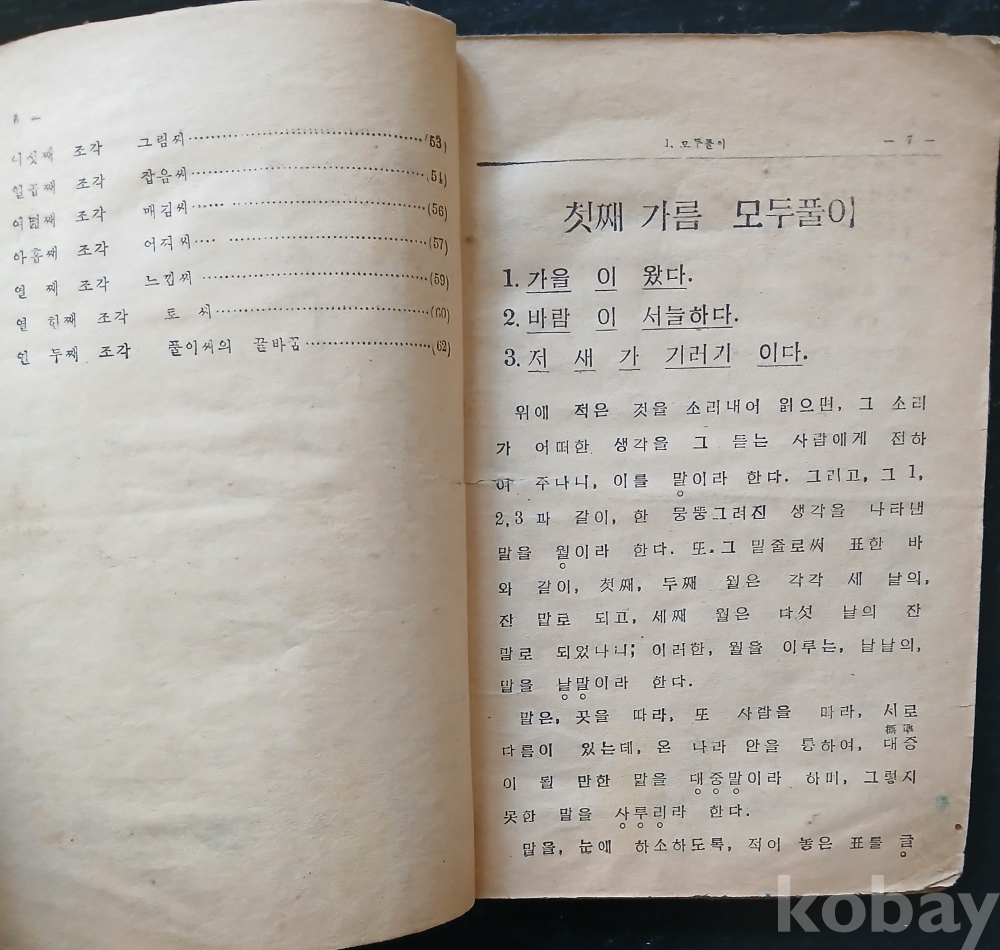 여섯째 조각 그림씨 (53)
일곱째 조각 잡음씨 (54)
여덟째 조각 매김씨 (56)
아홉째 조각 어찌씨 (57)
열 째 조각 느낌씨 (59)
열 한째 조각 토 씨 (60)
열 두째 조각 풀이씨의 끝바꿈 (62)
1. 모두풀이 — 7 —
첫째 가름 모두풀이
1. 가을 이 왔다.
2. 바람 이 서늘하다.
3. 저 새 가 기러기 이다.
위에 적은 것을 소리내어 읽으면, 그 소리
가 어떠한 생각을 그 듣는 사람에게 전하
여 주나니, 이를 말이라 한다. 그리고, 그 1,
2, 3 과 같이, 한 뭉뚱그려진 생각을 나타낸
말을 월이라 한다. 또. 그 밑줄로써 표한 바
와 같이, 첫째, 두째 월은 각각 세 낱의,
잔 말로 되고, 세째 월은 다섯 낱의 잔
말로 되었나니; 이러한, 월을 이루는, 낱낱의,
말을 낱말이라 한다.
말은, 곳을 따라, 또 사람을 따라, 서로
다름이 있는데, 온 나라 안을 통하여, 대중
標準
이 될 만한 말을 대중말이라 하며, 그렇지
못한 말을 사투리라 한다.
말을, 눈에 하소하도록, 적어 놓은 표를 글
kobay